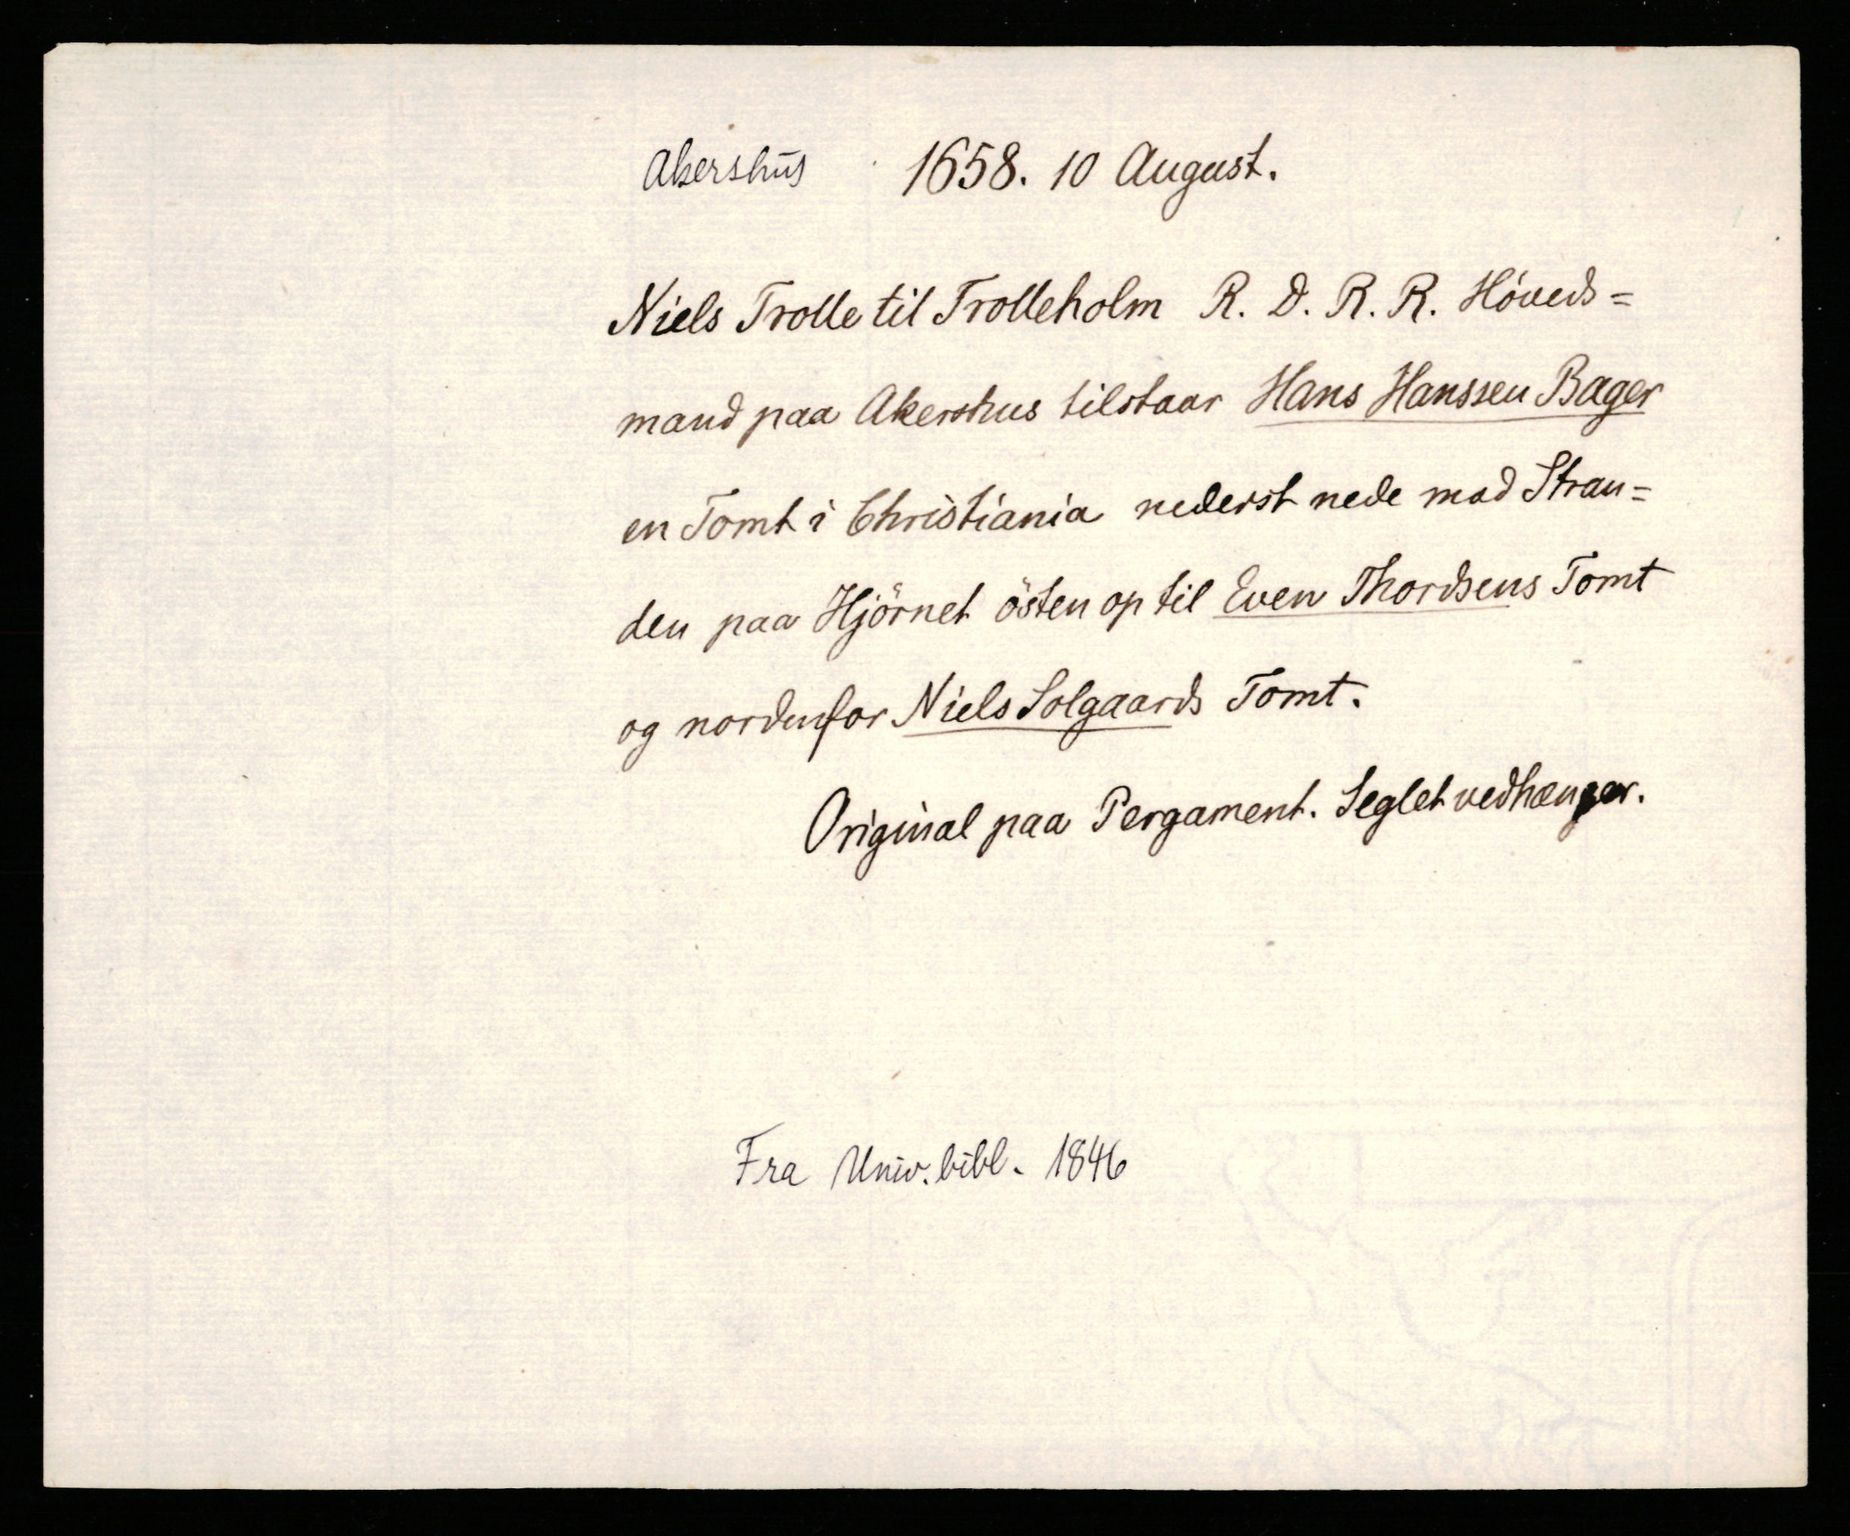 Akershus 1658. 10 August.
Niels Trolle til Trolleholm R. D. R. R. Höveds=
mand paa Akershus tilstaar Hans Hanssen Bager
en Tomt i Christiania nederst nede mod Stran=
den paa Hjörnet östen op til Even Thordsens Tomt
og nordenfor Niels Solgaards Tomt.
Original paa Pergament. Seglet vedhænger.
Fra Univ. bibl. 1846